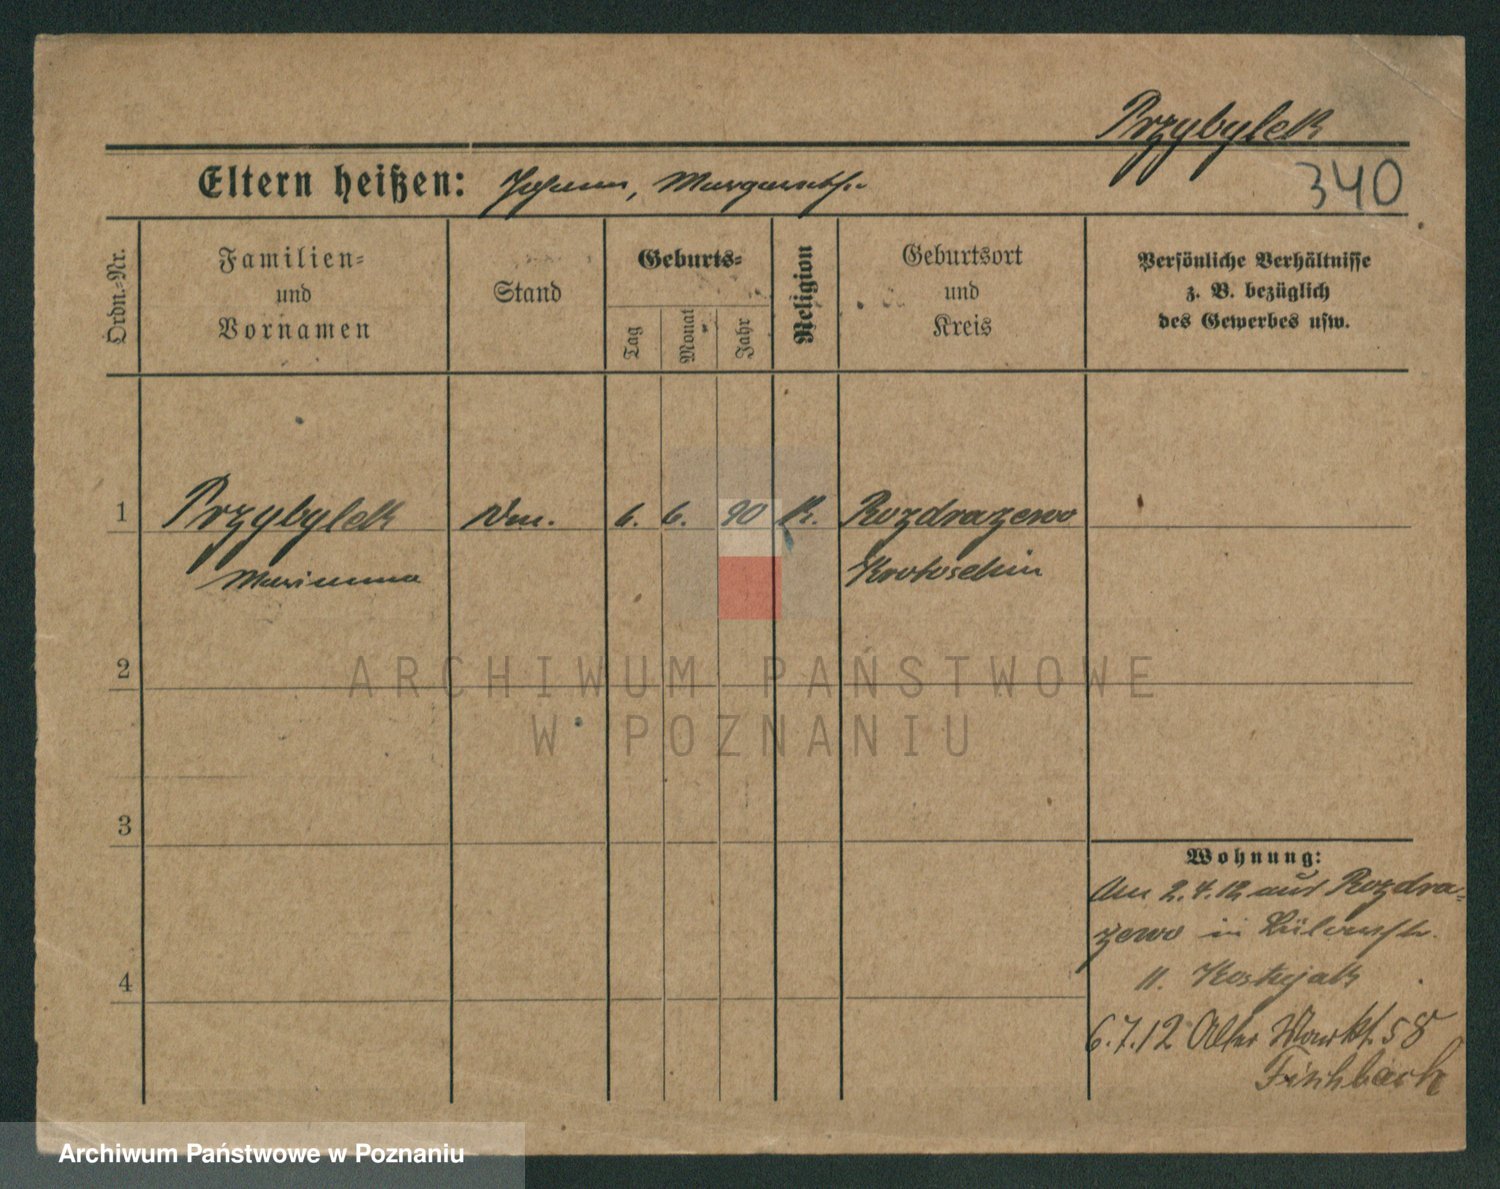 Przybylek
Eltern heißen: Johann, Margareth.
340
Ordn.-Nr.
Familien-
und
Vornamen
Stand
Geburts-
Tag
Monat
Jahr
Religion
Geburtsort
und
Kreis
Persönliche Verhältnisse
z. B. bezüglich
des Gewerbes usw.
1 Przybylek 6. 6. 90 K. Rozdrazewo
Marianna Krotoschin
2
3
4
Wohnung:
Am 2.4.12 aus Rozdra-
zewo in
11. Kostujak
6.7.12 Alter Markt 58
Fischbach
ARCHIWUM PAŃSTWOWE
W POZNANIU
Archiwum Państwowe w Poznaniu